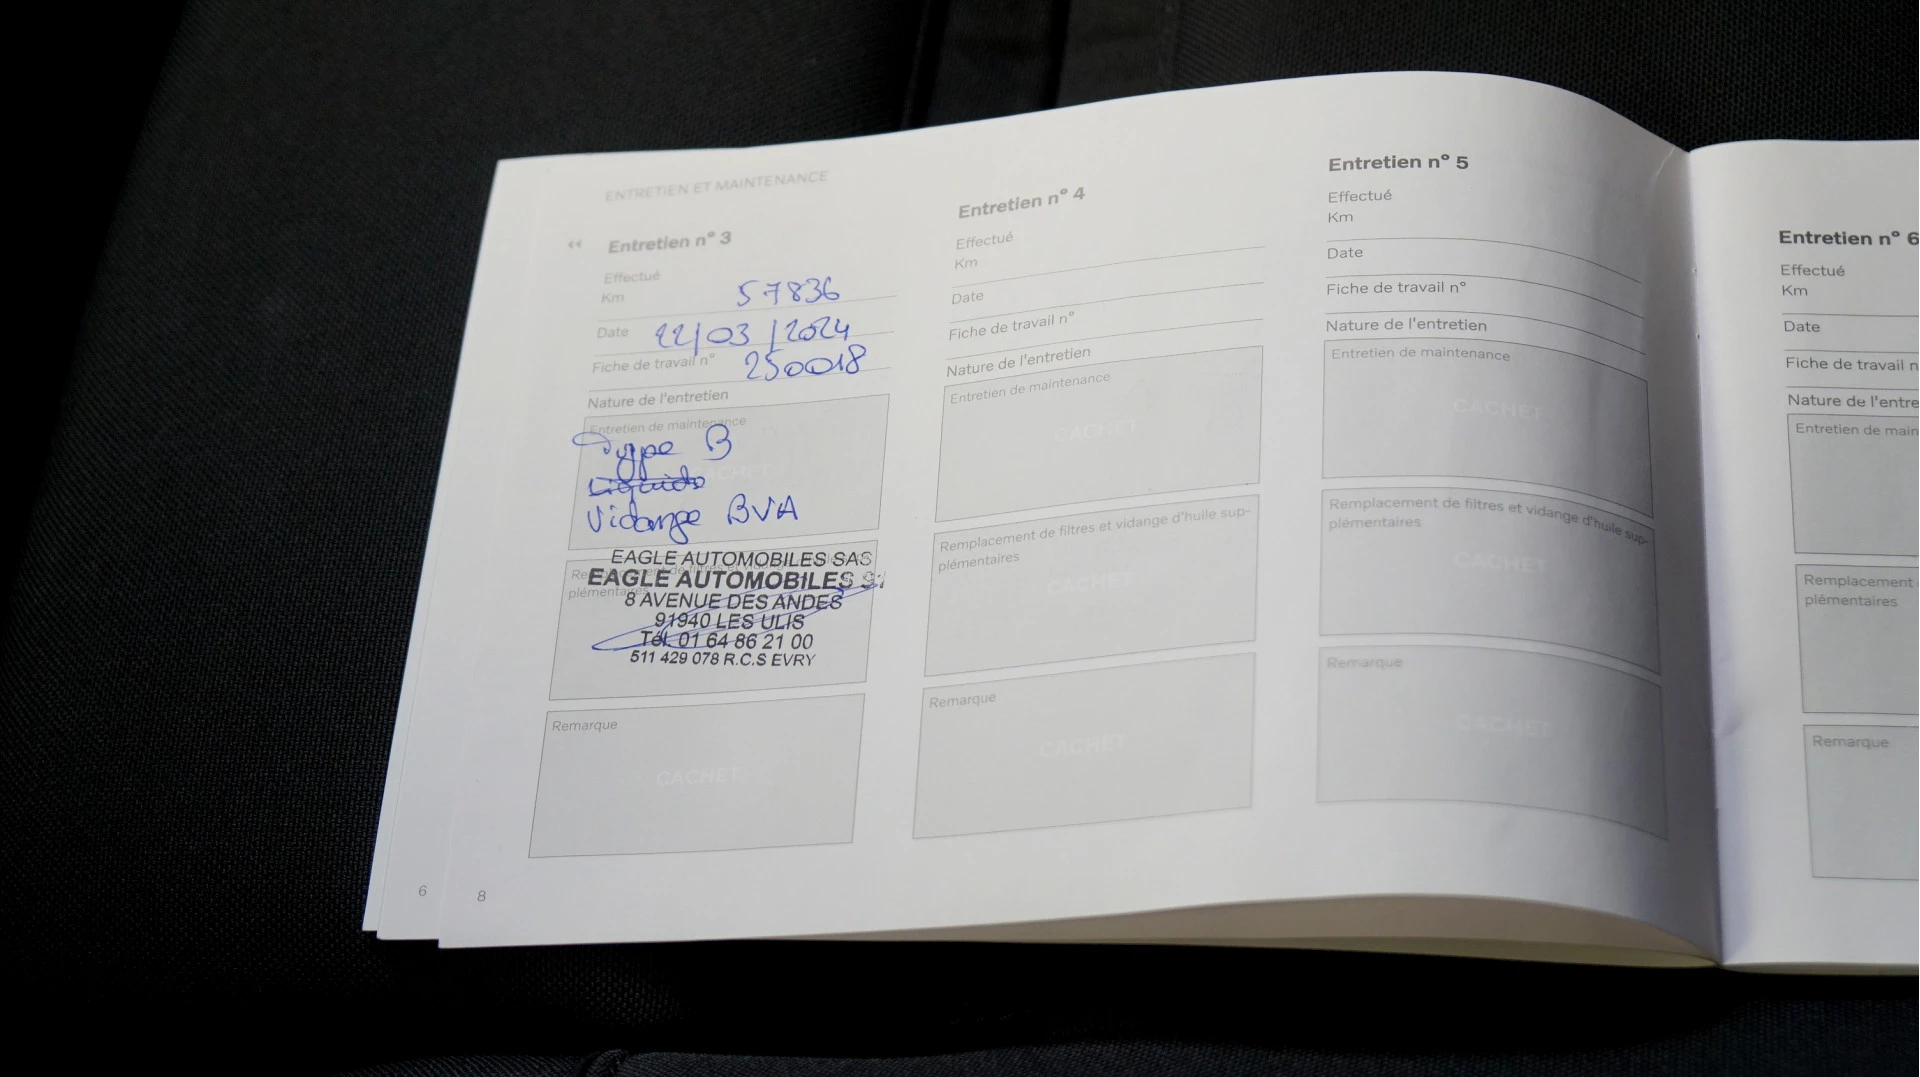 ENTRETIEN ET MAINTENANCE
Entretien n° 3
Effectué
Km 57836
Date 22/03/2024
Fiche de travail n° 250018
Nature de l'entretien
Entretien de maintenance
Type B
Liquide
Vidange BVA
EAGLE AUTOMOBILES SAS
EAGLE AUTOMOBILES
8 AVENUE DES ANDES
91940 LES ULIS
Tél. 01 64 86 21 00
511 429 078 R.C.S EVRY
plémentaires
Remarque
CACHET
Entretien n° 4
Effectué
Km
Date
Fiche de travail n°
Nature de l'entretien
Entretien de maintenance
CACHET
Remplacement de filtres et vidange d'huile sup-
plémentaires
CACHET
Remarque
CACHET
Entretien n° 5
Effectué
Km
Date
Fiche de travail n°
Nature de l'entretien
Entretien de maintenance
CACHET
Remplacement de filtres et vidange d'huile sup-
plémentaires
CACHET
Remarque
CACHET
6
8
Entretien n° 6
Effectué
Km
Date
Fiche de travail n
Nature de l'entre
Entretien de main
Remplacement
plémentaires
Remarque